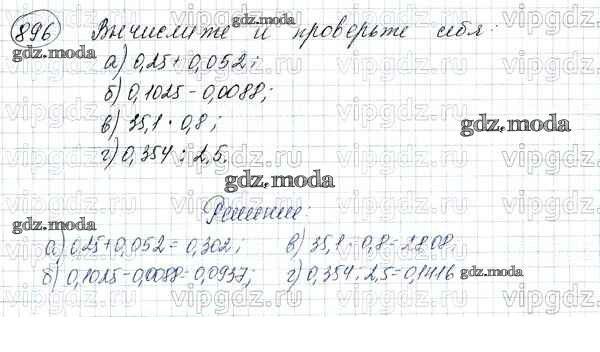 896 Вычислите и проверьте себя:
а) 0,25 + 0,052;
б) 0,1025 - 0,0088;
в) 35,1 · 0,8;
г) 0,354 : 2,5.
Решение:
а) 0,25 + 0,052 = 0,302; в) 35,1 · 0,8 = 28,08;
б) 0,1025 - 0,0088 = 0,0937; г) 0,354 : 2,5 = 0,1416
gdz.moda
gdz.moda
gdz.moda
gdz.moda
gdz.moda
gdz.moda
gdz.moda
vipgdz.ru